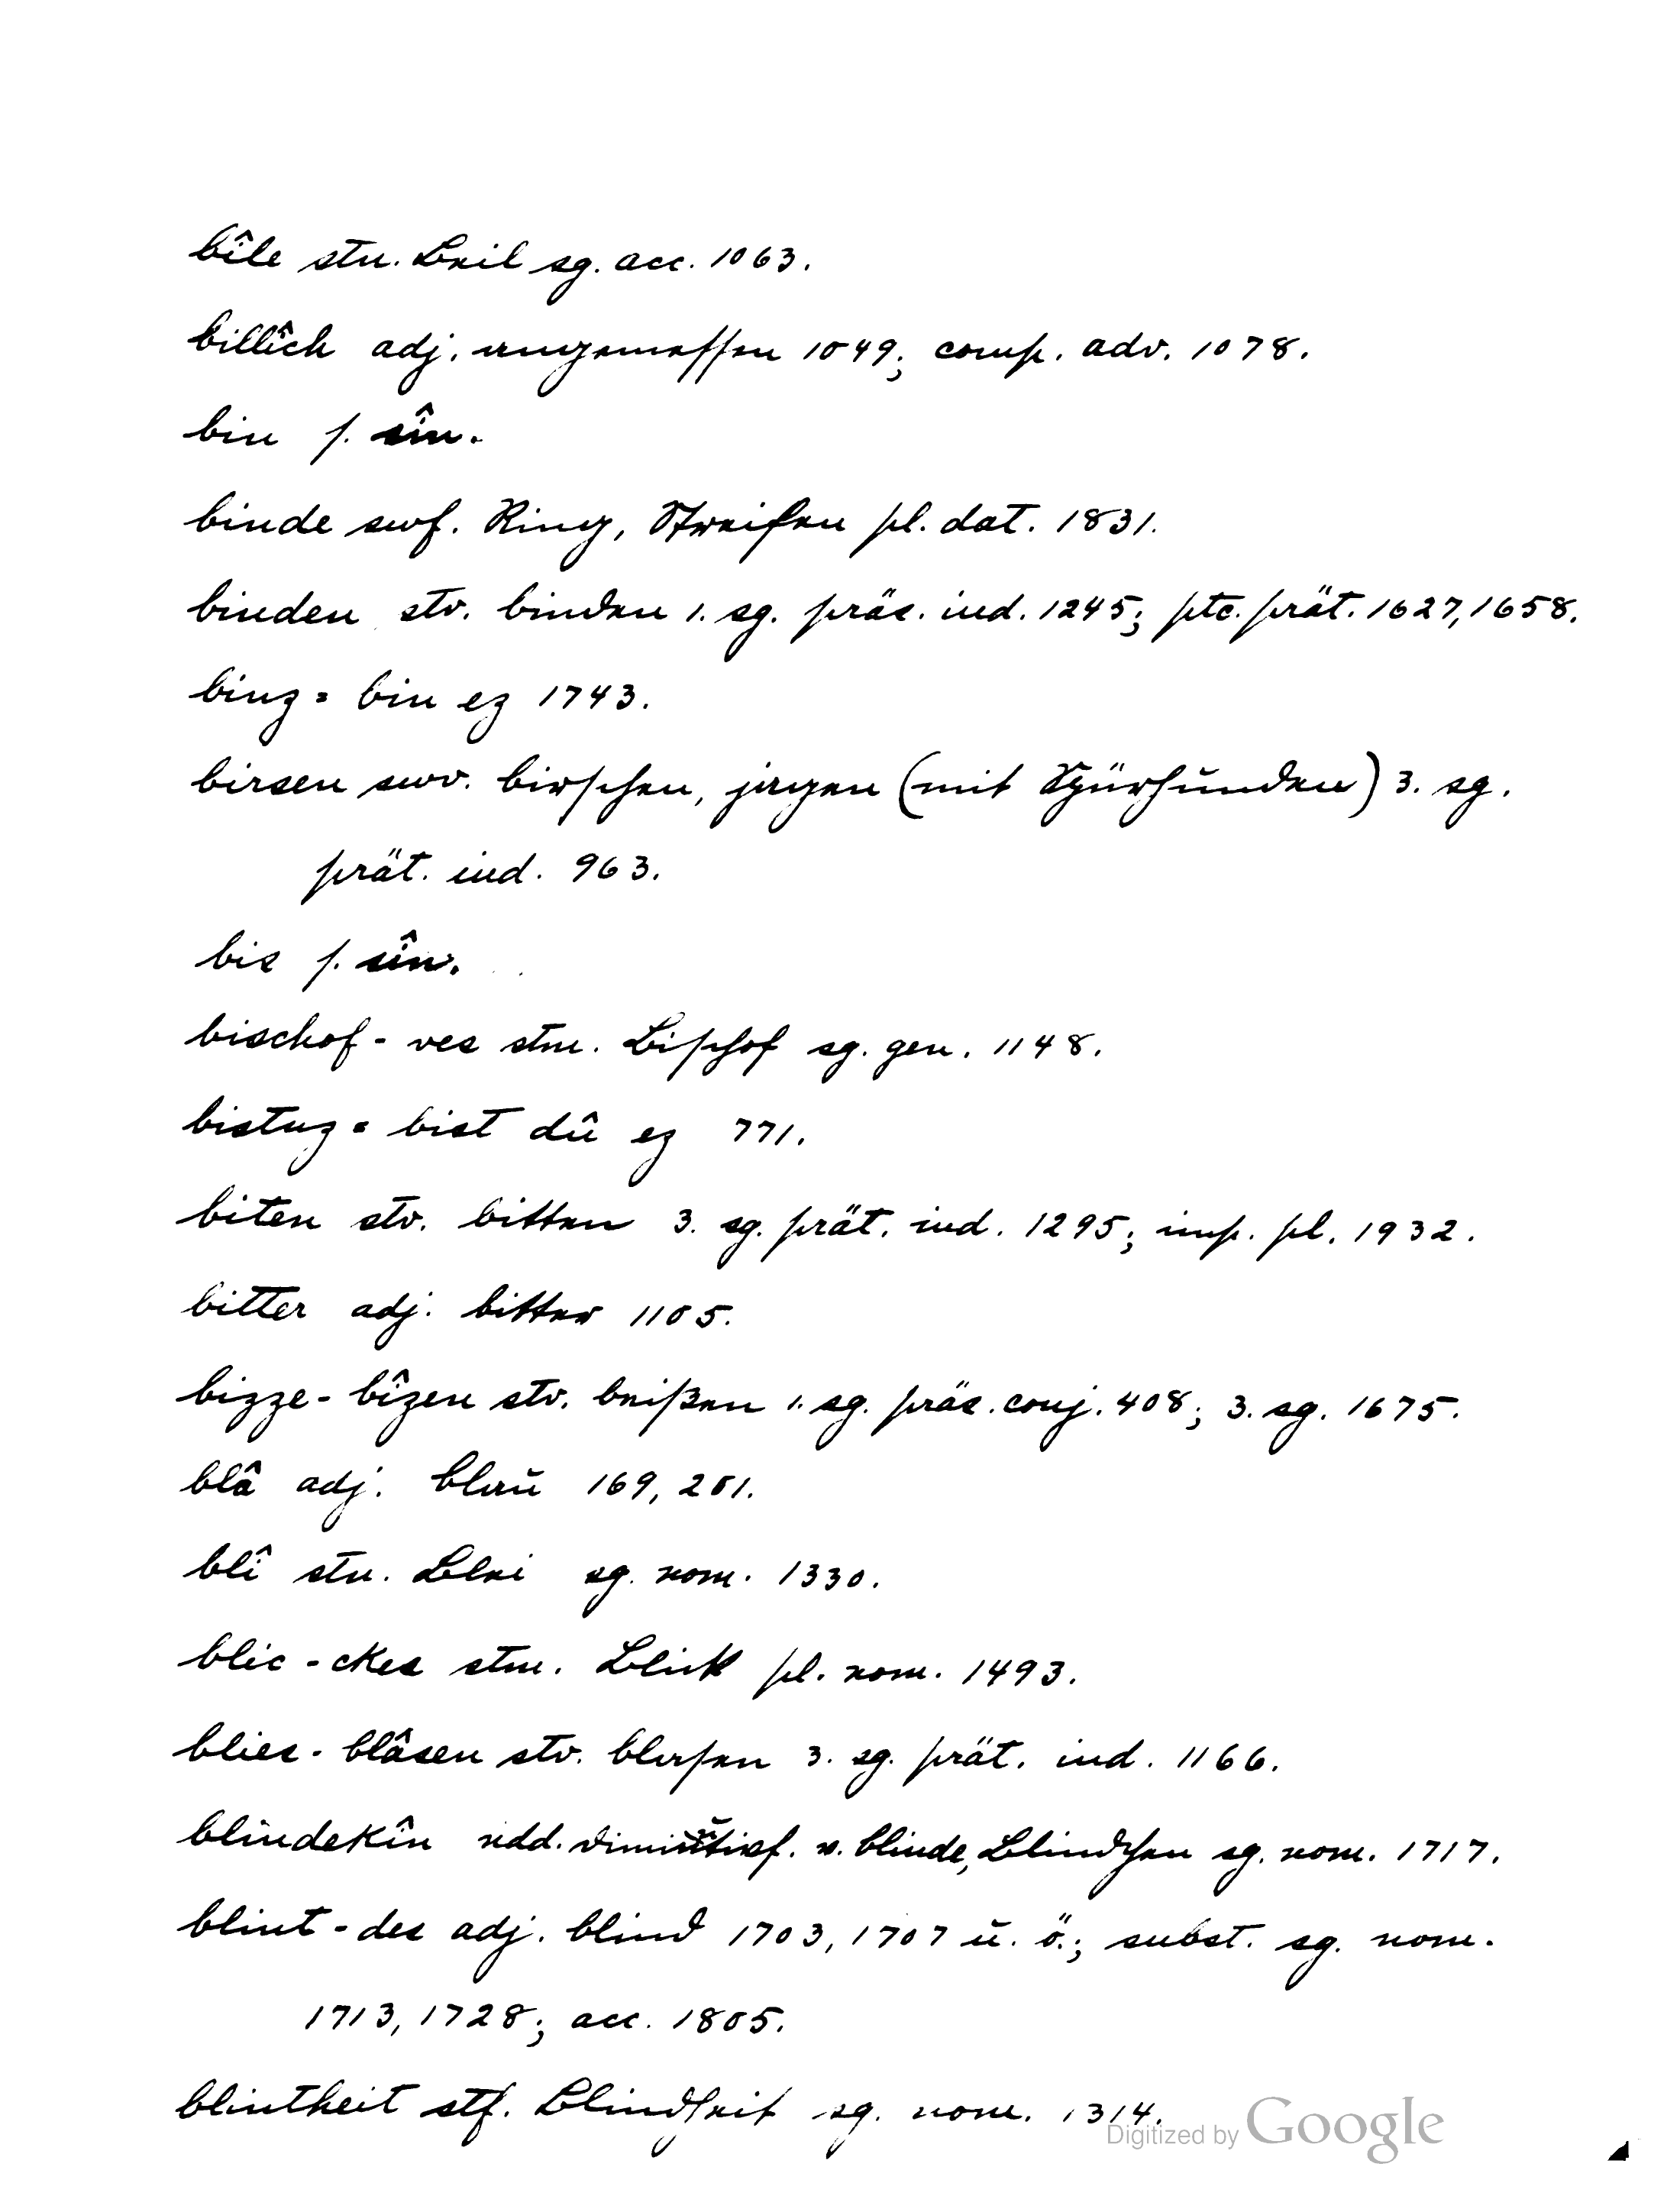 bîle stn. Beil sg. acc. 1063.
billîch adj. angemessen 1049; comp. adv. 1078.
bin s. sîn.
binde swf. Ring, Streifen pl. dat. 1831.
binden stv. binden 1. sg. präs. ind. 1245; ptc. prät. 1627, 1658.
binz = bin ez 1743.
birsen swv. birschen, jagen (mit Spürhunden) 3. sg.
prät. ind. 963.
bis s. sîn.
bischof - ves stm. Bischof sg. gen. 1148.
bistuz = bist dû ez 771.
biten stv. bitten 3. sg. prät. ind. 1295; imp. pl. 1932.
bitter adj. bitter 1105.
bizze - bîzen stv. beißen 1. sg. präs. conj. 408; 3. sg. 1675.
blâ adj. blau 169, 201.
blî stn. Blei sg. nom. 1330.
blic - ckes stm. Blick pl. nom. 1493.
blies - blâsen stv. blasen 3. sg. prät. ind. 1166.
blindekîn ndd. diminutivf. v. blinde, Blindchen sg. nom. 1717.
blint - des adj. blind 1703, 1707 u. ö.; subst. sg. nom.
1713, 1728; acc. 1805.
blintheit stf. Blindheit sg. nom. 1314.
Digitized by Google